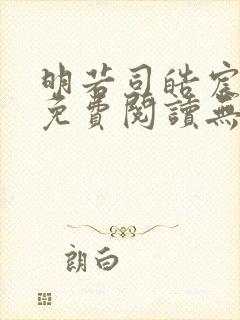 明若司皓宸
免費閱讀無
朗白